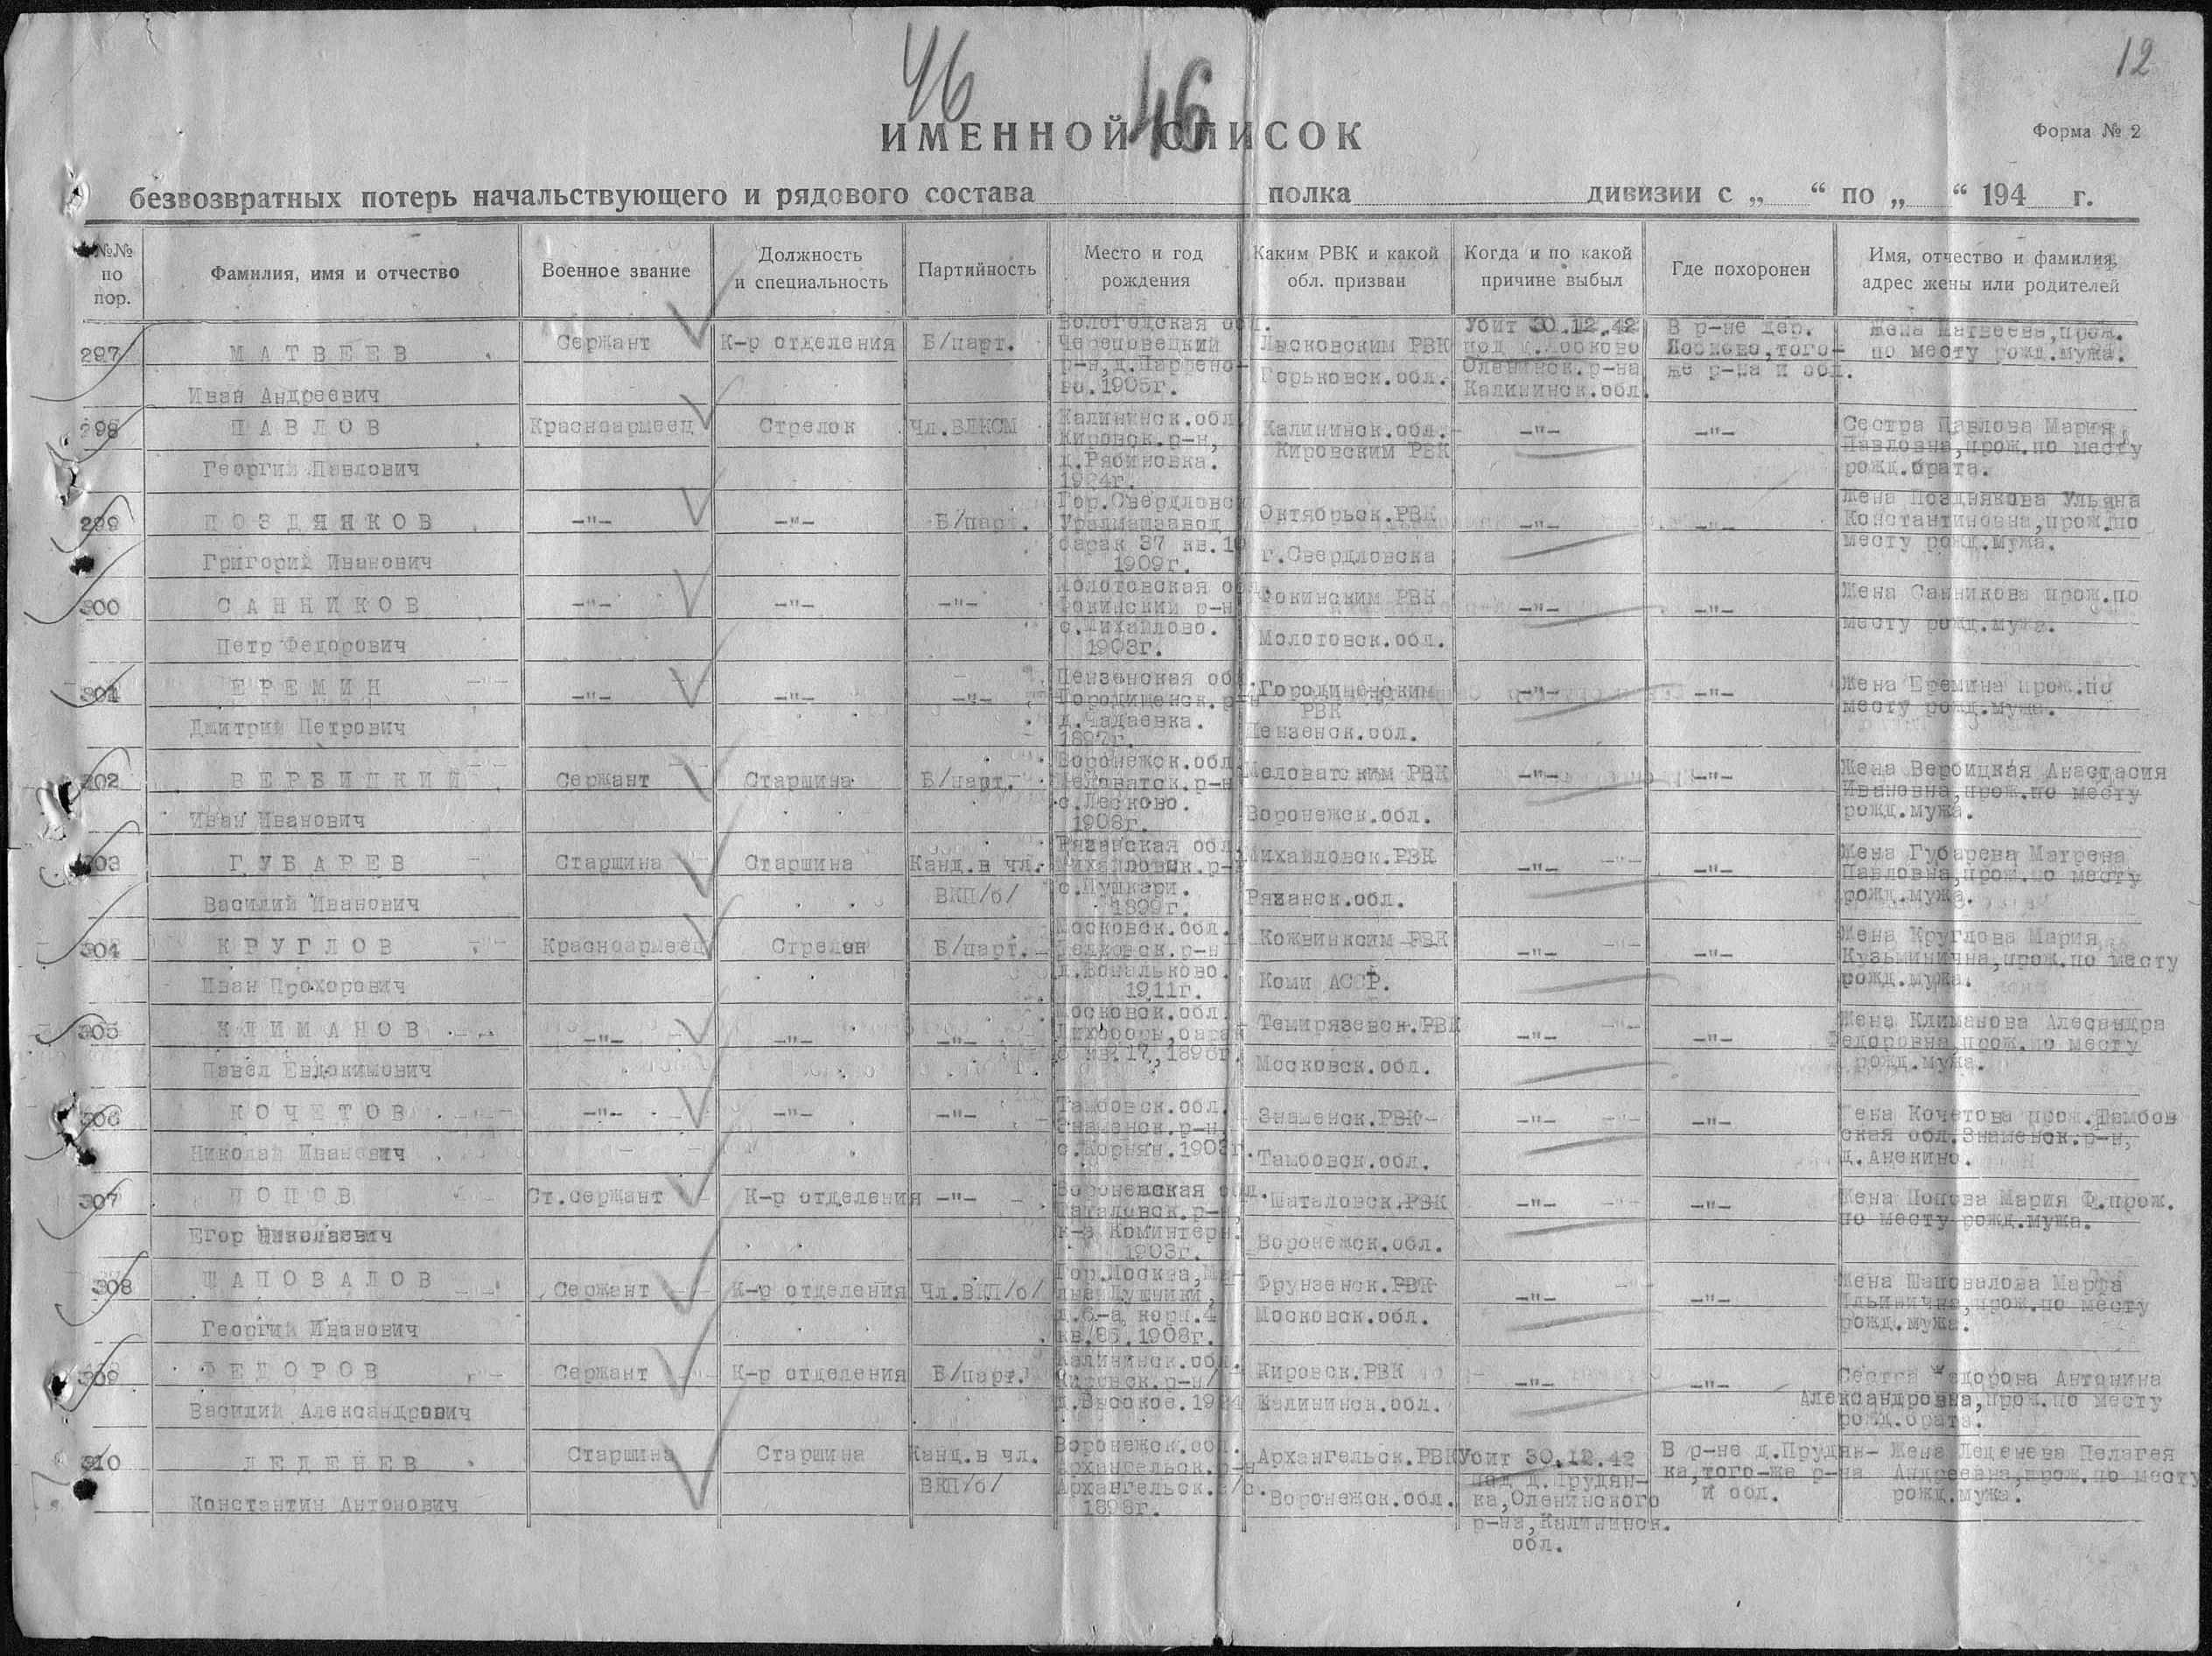 46
46
12
ИМЕННОЙ СПИСОК
Форма № 2
безвозвратных потерь начальствующего и рядового состава полка дивизии с „ “ по „ “ 194 г.
№№ по пор.
Фамилия, имя и отчество
Военное звание
Должность и специальность
Партийность
Место и год рождения
Каким РВК и какой обл. призван
Когда и по какой причине выбыл
Где похоронен
Имя, отчество и фамилия, адрес жены или родителей
297
МАТВЕЕВ
Иван Андреевич
Сержант
К-р отделения
Б/парт.
Вологодская обл.
Череповецкий
р-н, д.Парфено-
во. 1905г.
Лысковским РВК
Горьковск.обл.
Убит 30.12.42
под д.
Оленинск.р-на
Калининск.обл.
В р-не дер.
того-
же р-на и обл.
Жена Матвеева, прож.
по месту рожд.мужа.
298
ПАВЛОВ
Георгий Павлович
Красноармеец
Стрелок
Чл.ВЛКСМ
Калининск.обл.
Кировск.р-н,
д.Рябиновка.
1924г.
Калининск.обл.
Кировским РВК
-"-
-"-
Сестра Павлова Мария
Павловна, прож.по месту
рожд.брата.
299
ПОЗДНЯКОВ
Григорий Иванович
-"-
-"-
Б/парт.
Гор.Свердловск
Уралмашзавод
барак 37 кв.10
1909г.
Октябрьск.РВК
г.Свердловска
-"-
-"-
Жена Позднякова Ульяна
Константиновна, прож.по
месту рожд.мужа.
300
САННИКОВ
Петр Федорович
-"-
-"-
-"-
Молотовская обл.
Фокинский р-н
с.Михайлово.
1903г.
Фокинским РВК
Молотовск.обл.
-"-
-"-
Жена Санникова прож.по
месту рожд.мужа.
301
ЕРЕМИН
Дмитрий Петрович
-"-
-"-
-"-
Пензенская обл.
Городищенск.р-н
д.Чадаевка.
1897г.
Городищенским
РВК
Пензенск.обл.
-"-
-"-
Жена Еремина прож.по
месту рожд.мужа.
302
ВЕРБИЦКИЙ
Иван Иванович
Сержант
Старшина
Б/парт.
Воронежск.обл.
Меловатск.р-н
с.Лесково.
1908г.
Меловатским РВК
Воронежск.обл.
-"-
-"-
Жена Вербицкая Анастасия
Ивановна, прож.по месту
рожд.мужа.
303
ГУБАРЕВ
Василий Иванович
Старшина
Старшина
Канд.в чл.
ВКП/б/
Рязанская обл.
Михайловск.р-н
с.Пушкари.
1899г.
Михайловск.РВК
Рязанск.обл.
-"-
-"-
Жена Губарева Матрена
Павловна, прож.по месту
рожд.мужа.
304
КРУГЛОВ
Иван Прохорович
Красноармеец
Стрелок
Б/парт.
Московск.обл.
р-н
1911г.
Кожвинксим РВК
Коми АССР.
-"-
-"-
Жена Круглова Мария
Кузьминична, прож.по месту
рожд.мужа.
305
КЛИМАНОВ
Павел Евдокимович
-"-
-"-
-"-
Московск.обл.
Лихоборы, барак
кв.17, 1898г.
Темирязевск.РВК
Московск.обл.
-"-
-"-
Жена Климанова Алесандра
Федоровна, прож.по месту
рожд.мужа.
306
КОЧЕТОВ
Николай Иванович
-"-
-"-
-"-
Тамбовск.обл.
Знаменск.р-н
1903г.
Знаменск.РВК
Тамбовск.обл.
-"-
-"-
Жена Кочетова прож.Тамбов
ская обл.Знаменск.р-н,
д.Анекино.
307
ПОПОВ
Егор Николаевич
Ст.сержант
К-р отделения
-"-
Воронежская обл.
Шаталовск.р-н,
к-з Коминтерн.
1903г.
Шаталовск.РВК
Воронежск.обл.
-"-
-"-
Жена Попова Мария Ф.прож.
по месту рожд.мужа.
308
ШАПОВАЛОВ
Георгий Иванович
Сержант
К-р отделения
Чл.ВКП/б/
Гор.Москва,
д.6-а, корп.4
кв.86. 1908г.
Фрунзенск.РВК
Московск.обл.
-"-
-"-
Жена Шаповалова Марта
Ильинична, прож.по месту
рожд.мужа.
309
ФЕДОРОВ
Василий Александрович
Сержант
К-р отделения
Б/парт.
Калининск.обл.
Кировск.р-н
д.Высокое. 1924
Кировск.РВК
Калининск.обл.
-"-
-"-
Сестра Федорова Антонина
Александровна, прож.по месту
рожд.брата.
310
ЛЕДЕНЕВ
Константин Антонович
Старшина
Старшина
Канд.в чл.
ВКП/б/
Воронежск.обл.
Архангельск.р-н
Архангельск.с/с.
1898г.
Архангельск.РВК
Воронежск.обл.
Убит 30.12.42
под д.Прудян-
ка, Оленинского
р-на, Калининск.
обл.
В р-не д.Прудян-
ка, того-же р-на
и обл.
Жена Леденева Пелагея
Андреевна, прож.по месту
рожд.мужа.